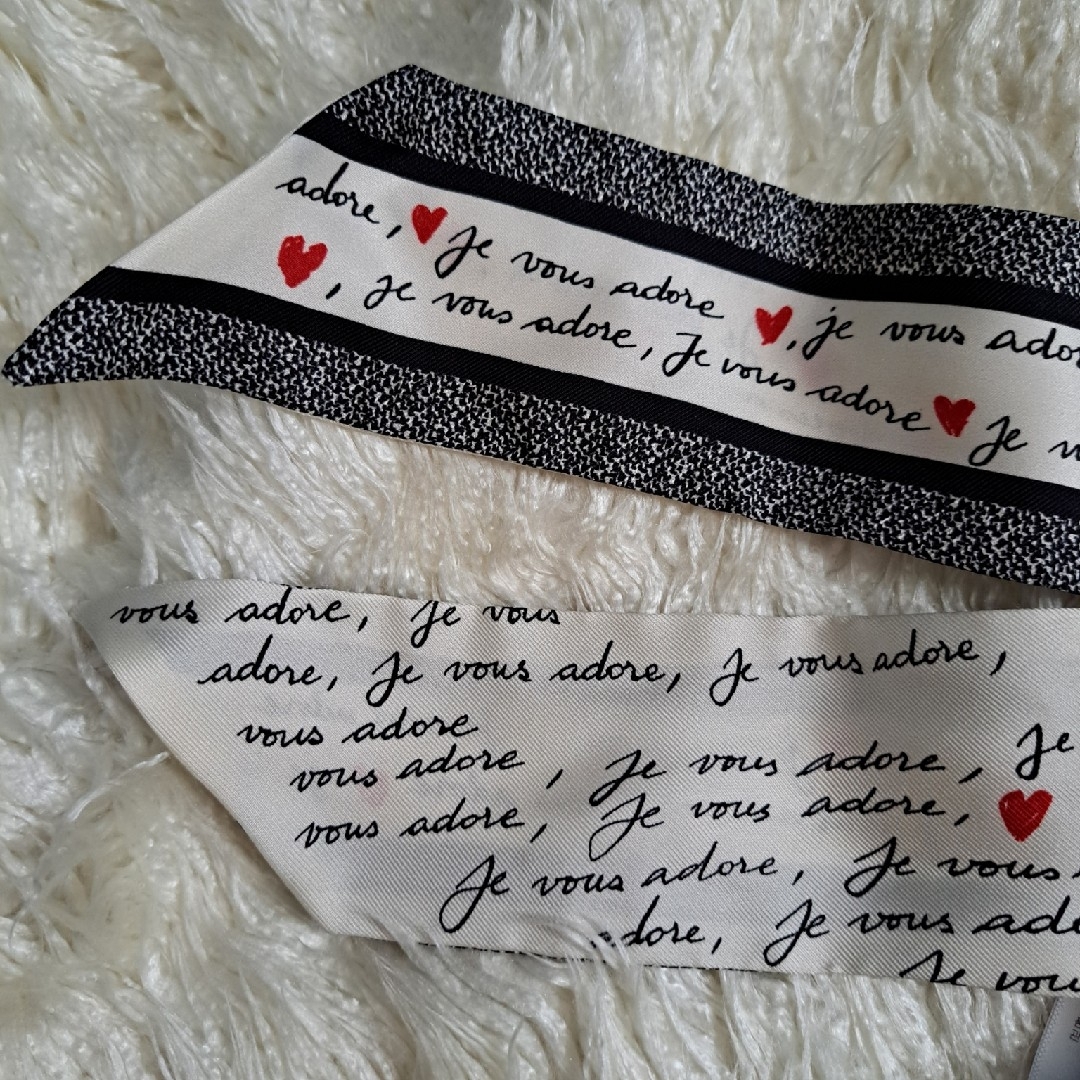 adore, ❤ Je vous adore ❤, je vous ador
❤, je vous adore, Je vous adore ❤ Je v
vous adore, Je vous
adore, Je vous adore, Je vous adore,
vous adore Je
vous adore, Je vous adore,
vous adore, Je vous adore, ❤
Je vous adore, Je vous
adore, Je vous ado
Je vou